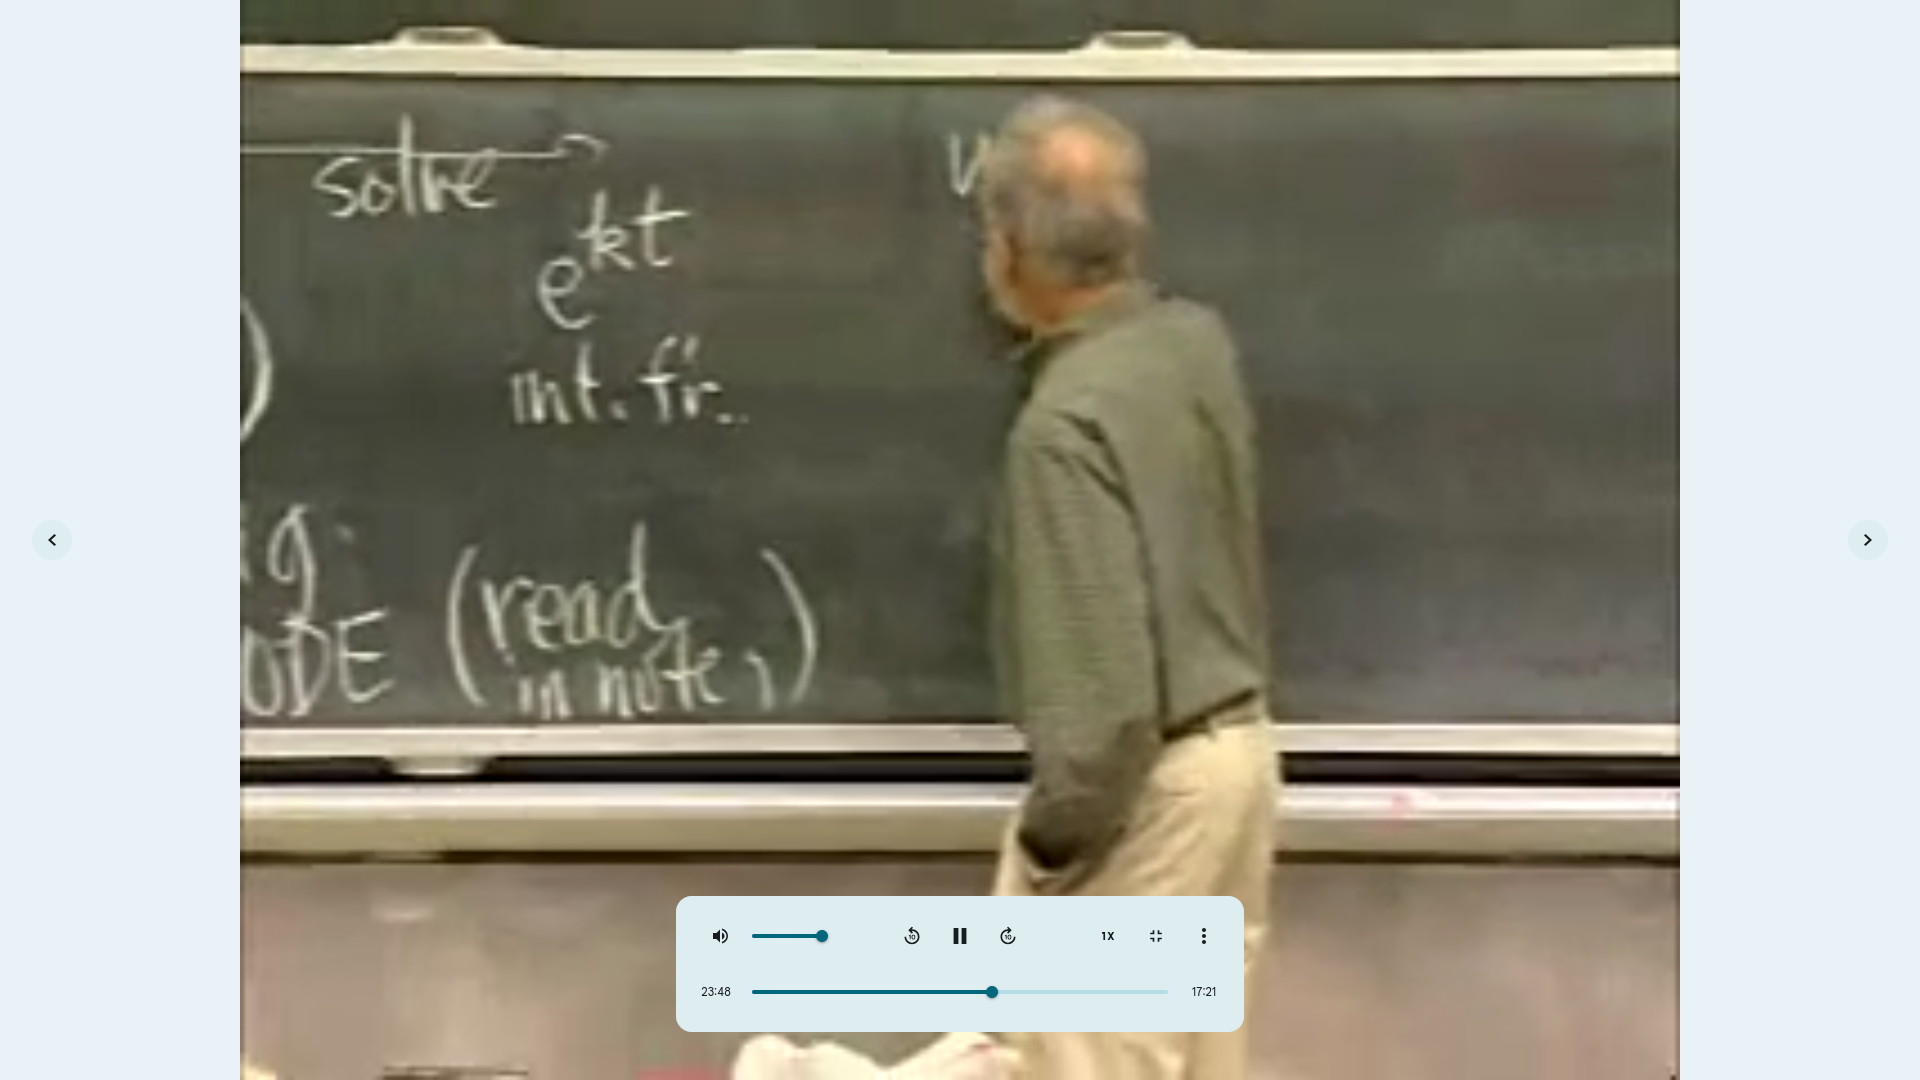 solve
e^kt
int. f'r.
ODE (read
in notes)
1X
23:48
17:21